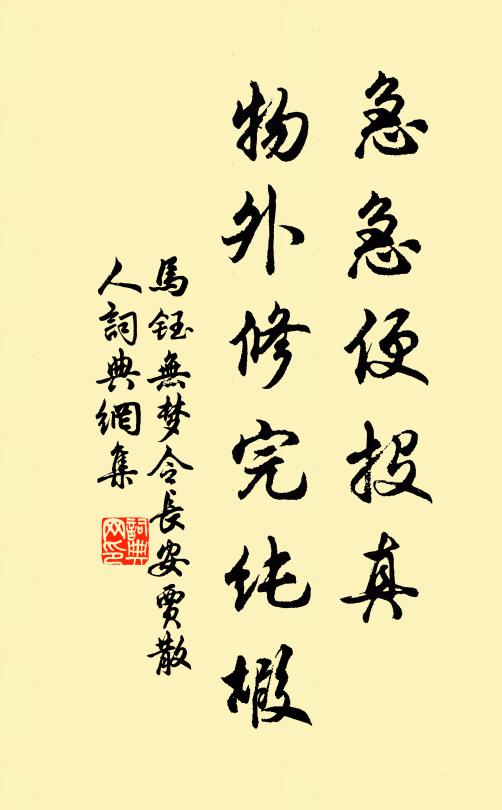 急急便投真
物外修完纯椵
馬鈺無梦令長安賈散
人詞典網集
詞典
网印